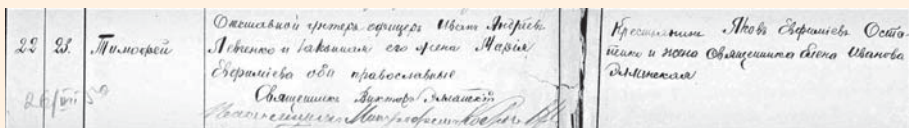 22 23. Тимофей
Отставной унтеръ офицеръ Иванъ Андреевъ
Левченко и законная его жена Марія
Евфиміева оба православные
Священникъ Викторъ
Крестьянинъ Яковъ Евфиміевъ Оста-
пенко и жена Священника Елена Иванова
26/VII 59